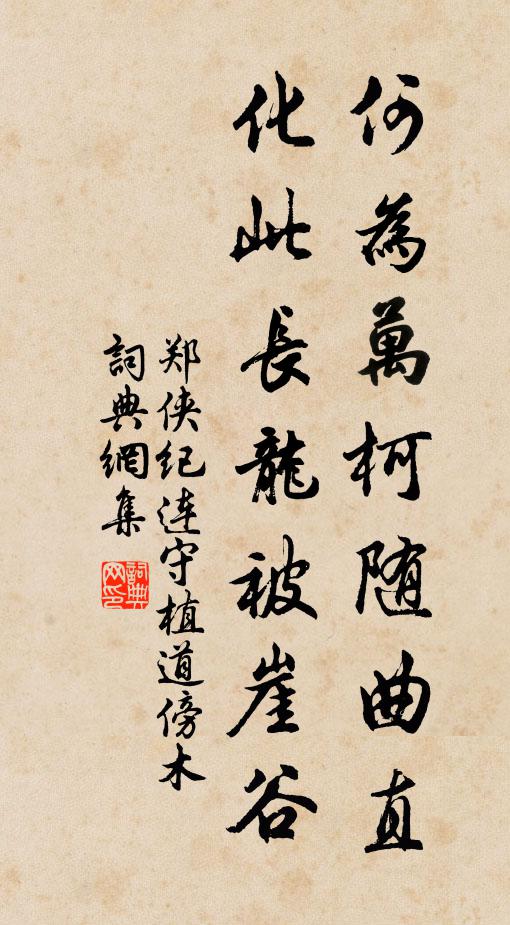 何為萬柯随曲直
化此長龍被崖谷
郑侠纪连守植道傍木
詞典網集
詞典网印